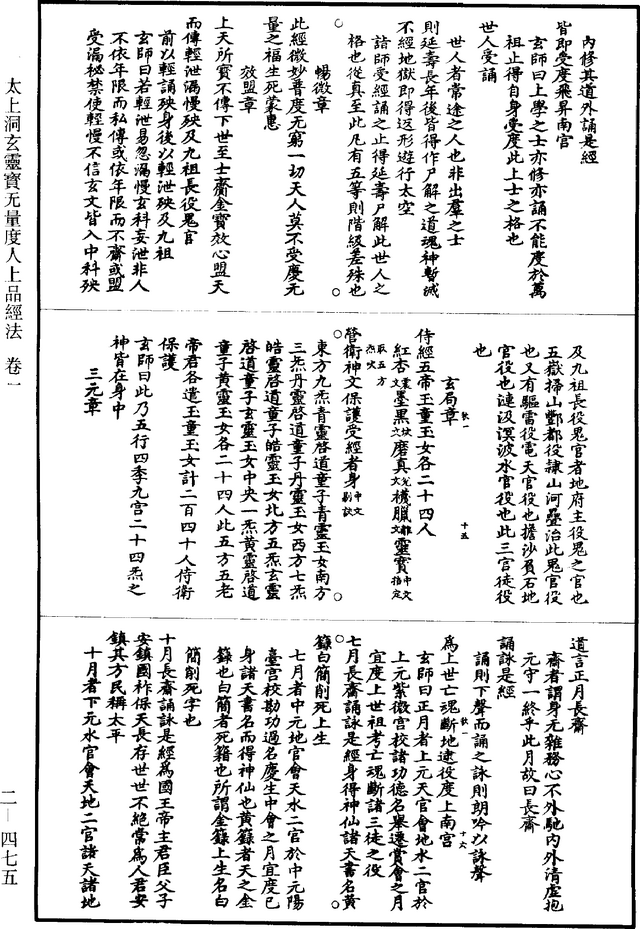 太上洞玄靈寶无量度人上品經法　卷一
二—四七五
內修其道外誦是經
皆即受度飛昇南宮
玄師曰上學之士亦修亦誦不能度於萬
祖止得自身受度此上士之格也
世人受誦
世人者常途之人也非出羣之士
則延壽長年後皆得作尸解之道魂神暫滅
不經地獄即得返形遊行太空
諸師受經誦之止得延壽尸解此世人之
格也從真至此凡有五等則階級差殊也
暢微章
此經微妙普度无窮一切天人莫不受慶无
量之福生死蒙惠
效盟章
上天所寶不傳下世至士齎金寶效心盟天
而傳輕泄漏慢殃及九祖長役鬼官
前以輕誦殃身後以輕泄殃及九祖
玄師曰若輕泄易忽漏慢玄科妄泄非人
不依年限而私傳或依年限而不齋或盟
受漏祕禁使輕慢不信玄文皆入中科殃
及九祖長役鬼官者地府主役鬼之官也
五嶽掃山酆都役隸山河壘治此鬼官役
也又有驅雷役電天官役也擔沙負石地
官役也漣汲溟波水官役也此三官徒役
也
玄局章
侍經五帝玉童玉女各二十四人
紅杏墨果磨真構臘靈寶
營衛神文保護受經者身
東方九炁青靈啓道童子青靈玉女南方
三炁丹靈啓道童子丹靈玉女西方七炁
皓靈啓道童子皓靈玉女北方五炁玄靈
啓道童子玄靈玉女中央一炁黃靈啓道
童子黃靈玉女各二十四人此五方五老
帝君各遣玉童玉女計二百四十人侍衛
保護
玄師曰此乃五行四季九宮二十四炁之
神皆在身中
三元章
道言正月長齋
齋者謂身无雜務心不外馳內外清虛抱
元守一終乎此月故曰長齋
誦詠是經
誦則下聲而誦之詠則朗吟以詠聲
為上世亡魂斷地逮役度上南宮
玄師曰正月者上元天官會地水二官於
上元紫微宮校諸功德名舉遷賞會之月
宜度上世祖考亡魂斷諸三徒之役
七月長齋誦詠是經身得神仙諸天書名黃
籙白簡削死上生
七月者中元地官會天水二官於中元陽
臺宮校勘功過名慶生中會之月宜度已
身諸天書名而得神仙也黃籙者天之金
籙也白簡者死籍也所謂金籙上生名白
簡削死字也
十月長齋誦詠是經為國王帝主君臣父子
安鎮國祚保天長存世世不絕常為人君安
鎮其方民稱太平
十月者下元水官會天地二官諸天諸地